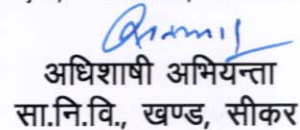 अधिशाषी अभियन्ता
सा.नि.वि., खण्ड, सीकर